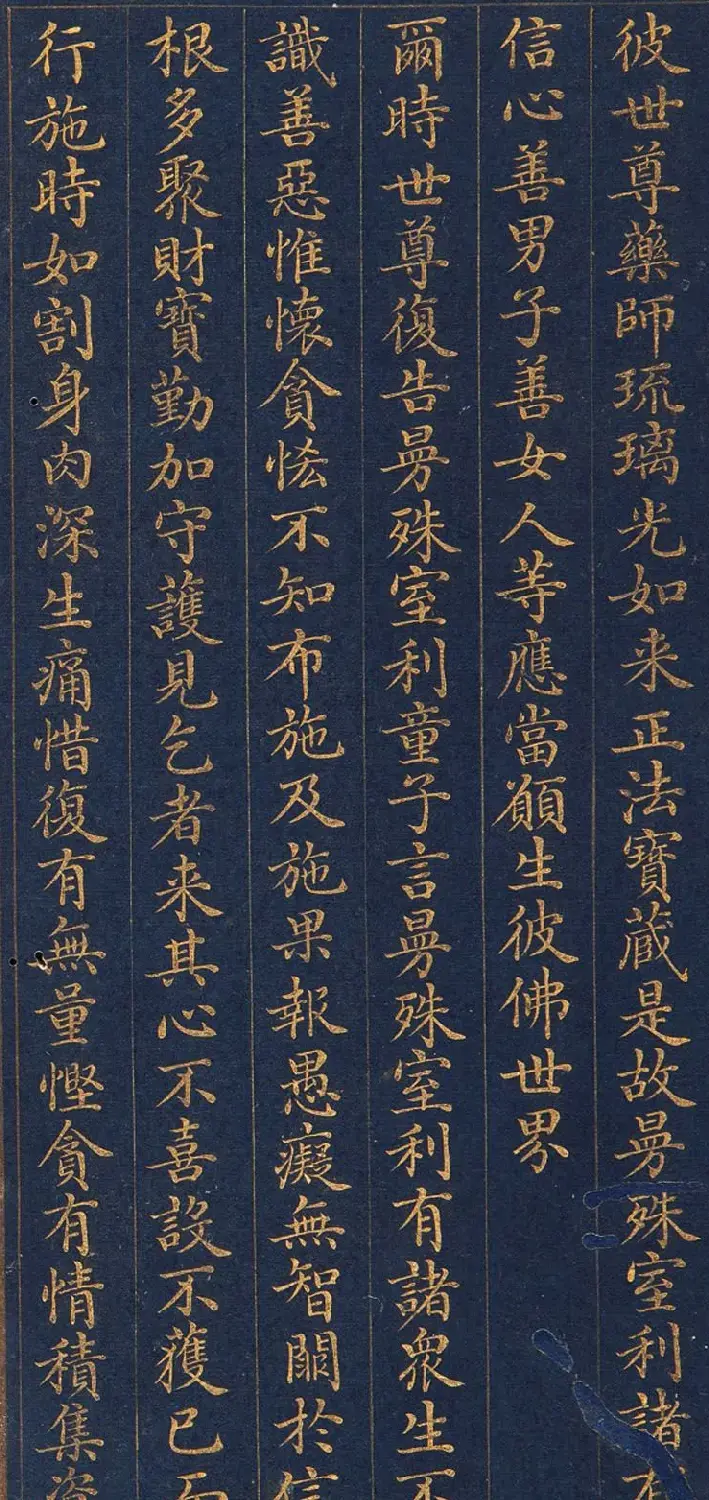 彼世尊藥師琉璃光如来正法寶蔵是故曼殊室利諸有
信心善男子善女人等應當願生彼佛世界
爾時世尊復告曼殊室利童子言曼殊室利有諸衆生不
識善惡惟懷貪恡不知布施及施果報愚癡無智闕於信
根多聚財寶勤加守護見乞者来其心不喜設不獲已而
行施時如割身肉深生痛惜復有無量慳貪有情積集資